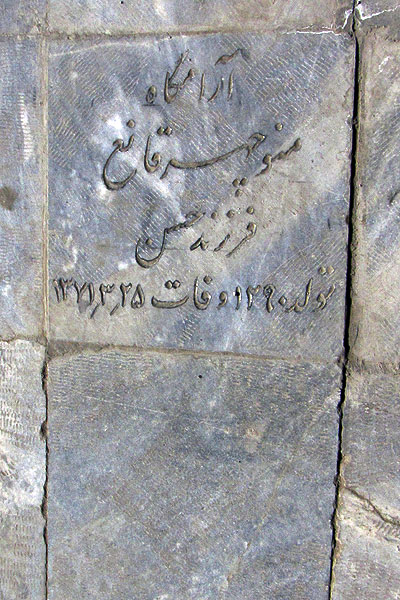 آرامگاه
منوچهر قانع
فرزند حسن
تولد ۱۲۹۰ وفات ۱۳۷۱٫۳٫۲۵